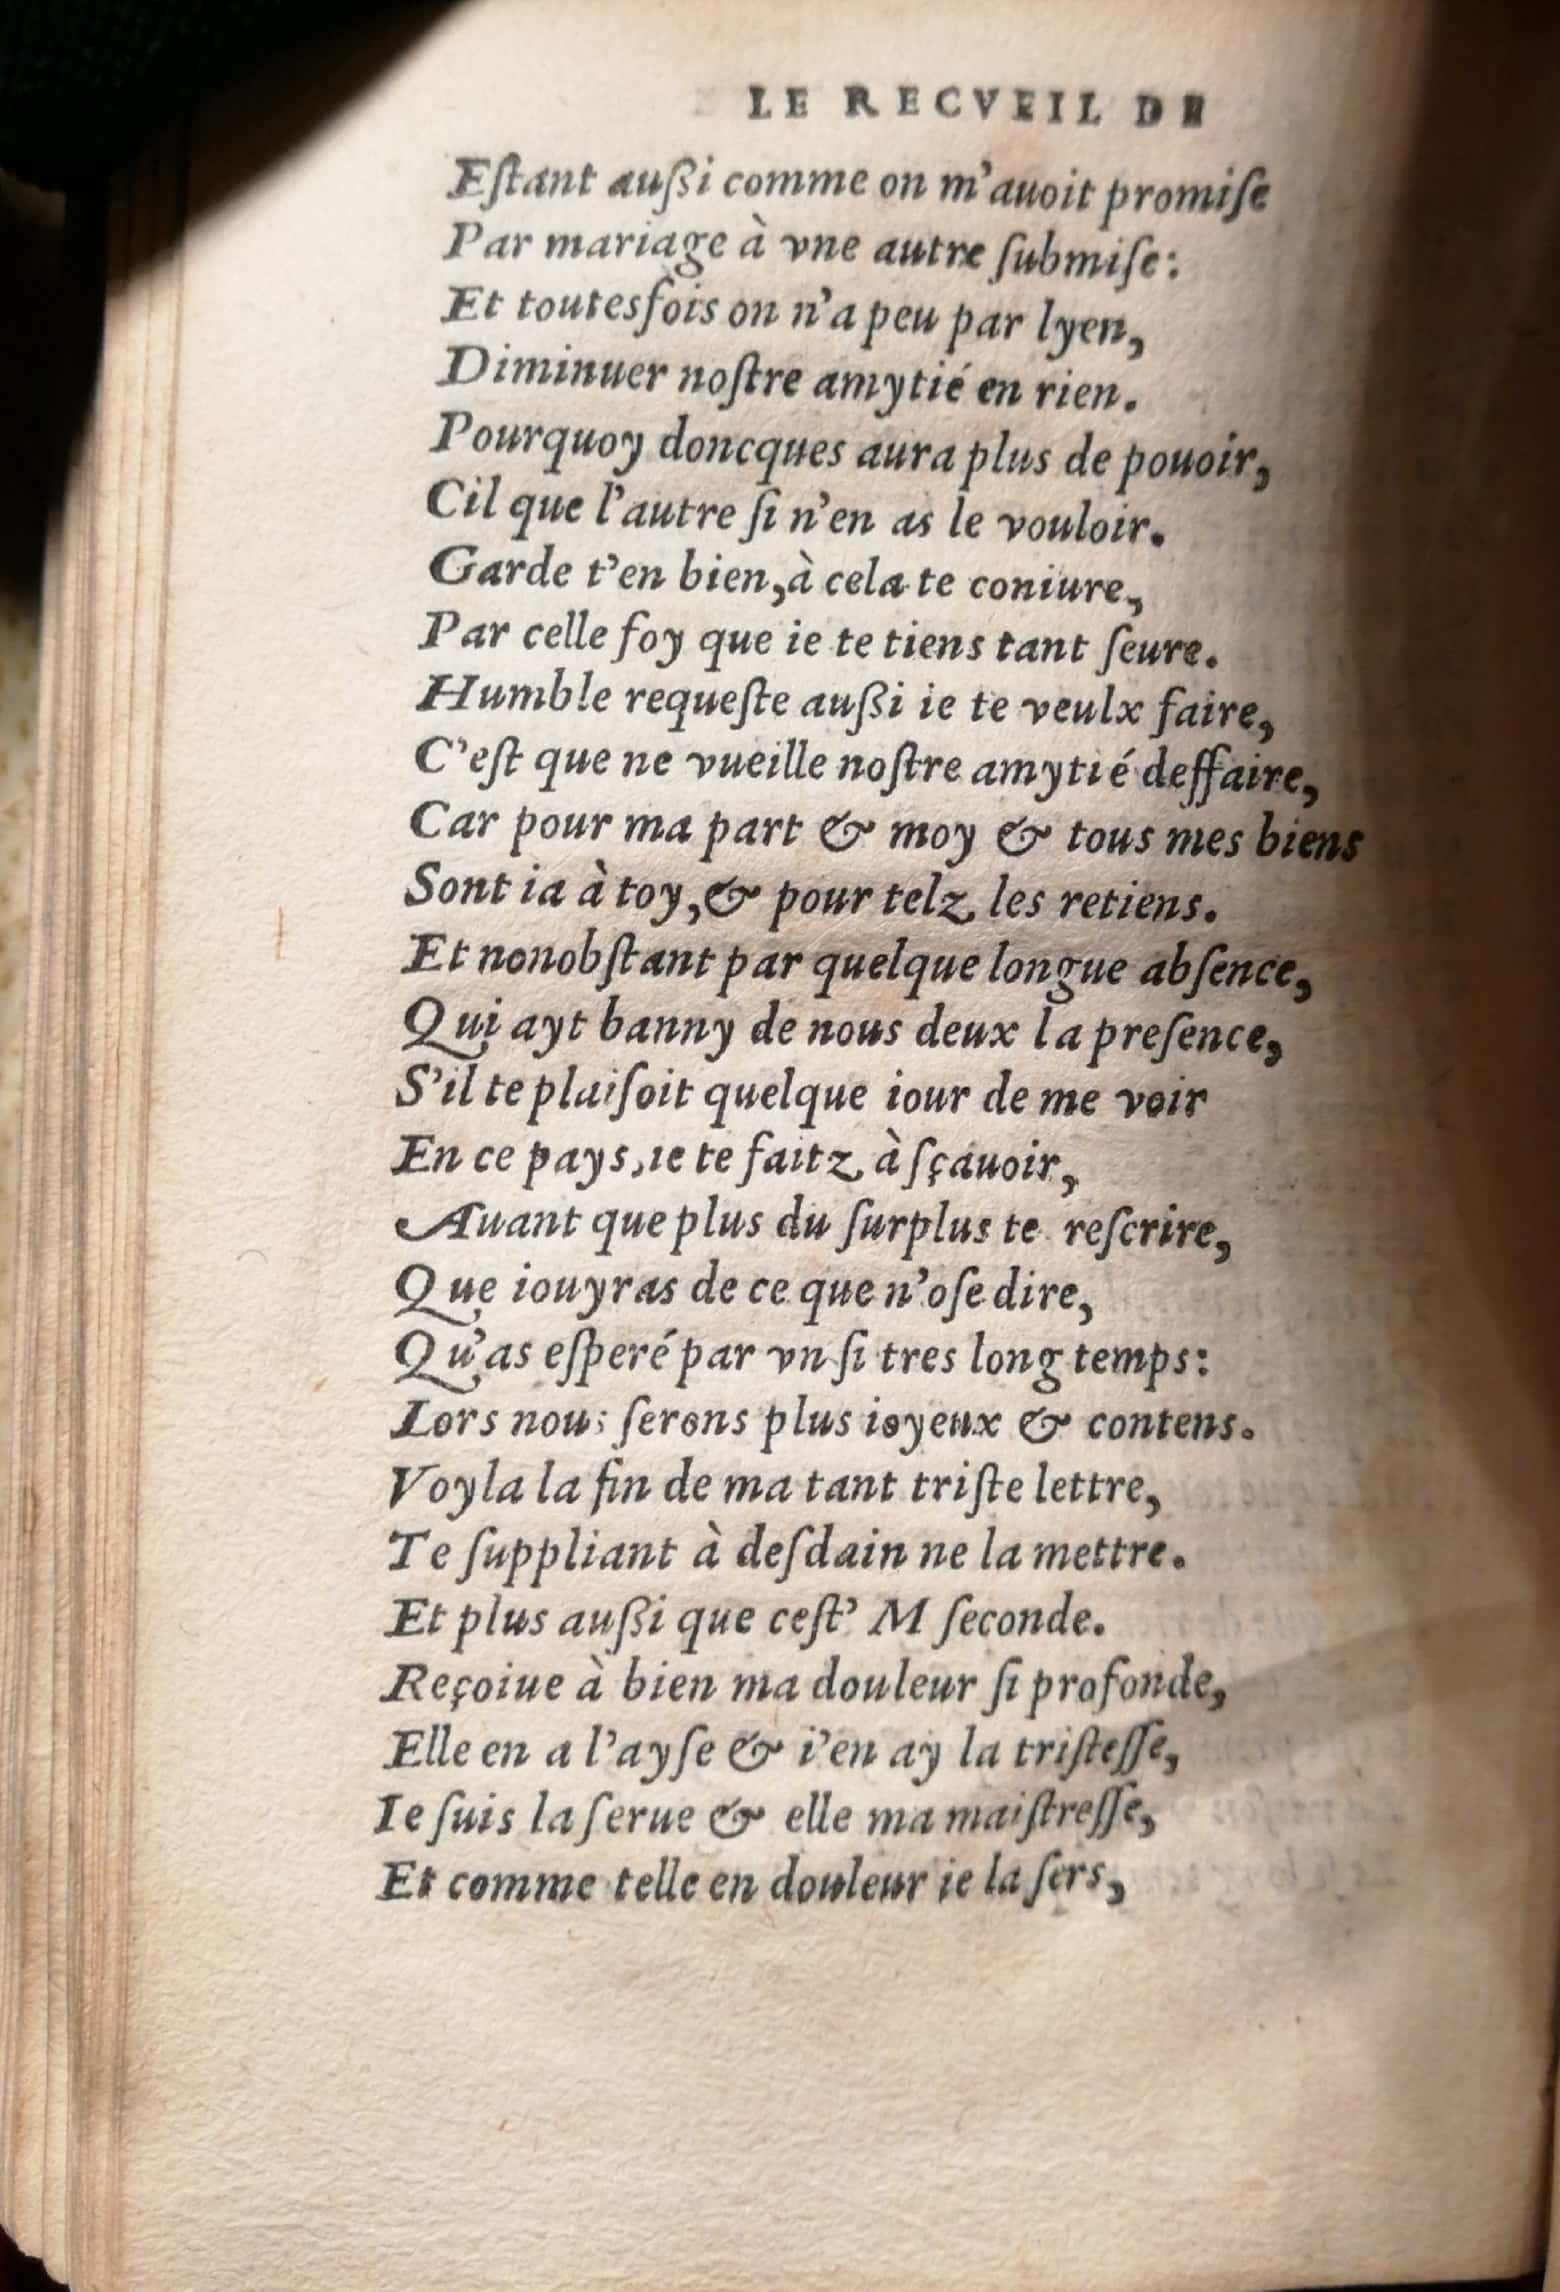 LE RECVEIL DE
Eſtant auſsi comme on m'auoit promiſe
Par mariage à vne autre ſubmiſe:
Et toutesfois on n'a peu par lyen,
Diminuer noſtre amytié en rien.
Pourquoy doncques aura plus de pouoir,
Cil que l'autre ſi n'en as le vouloir.
Garde t'en bien, à cela te coniure,
Par celle foy que ie te tiens tant ſeure.
Humble requeſte auſsi ie te veulx faire,
C'eſt que ne vueille noſtre amytié deffaire,
Car pour ma part & moy & tous mes biens
Sont ia à toy, & pour telz les retiens.
Et nonobſtant par quelque longue abſence,
Qui ayt banny de nous deux la preſence,
S'il te plaiſoit quelque iour de me voir
En ce pays, ie te faitz à ſçauoir,
Auant que plus du ſurplus te reſcrire,
Que iouyras de ce que n'oſe dire,
Qu'as eſperé par vn ſi tres long temps:
Lors nous ſerons plus ioyeux & contens.
Voyla la fin de ma tant triſte lettre,
Te ſuppliant à deſdain ne la mettre.
Et plus auſsi que ceſt' M ſeconde.
Reçoiue à bien ma douleur ſi profonde,
Elle en a l'ayſe & i'en ay la triſteſſe,
Ie ſuis la ſerue & elle ma maiſtreſſe,
Et comme telle en douleur ie la ſers,